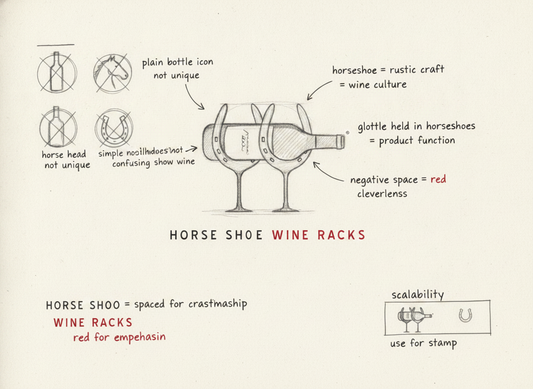 plain bottle icon
not unique
horseshoe = rustic craft
= wine culture
glottle held in horseshoes
= product function
horse head
not unique
simple
confusing show wine
negative space = red
cleverlenss
HORSE SHOE WINE RACKS
HORSE SHOO = spaced for crastmaship
WINE RACKS
red for empehasin
scalability
use for stamp